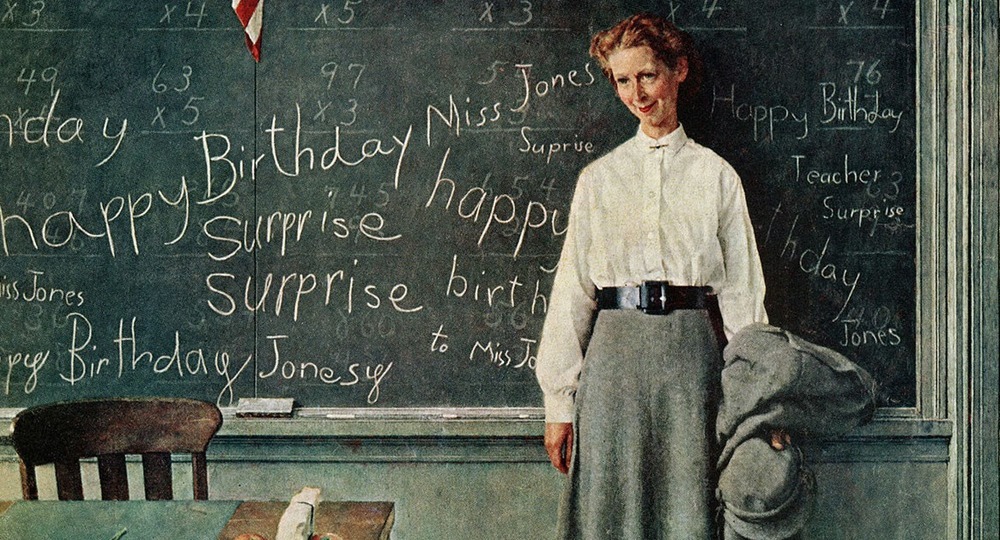 x 3 x 4 x 5 x 3 x 4 x 4
49 63 97 76
x 5 x 3
hday
happy
Miss Jones
Birthday
Surprise
Surprise
py Birthday Jonesy
Miss Jones
Suprise
happy
birth
to Miss Jo
Happy Birthday
Teacher
Surprise
hday
Jones